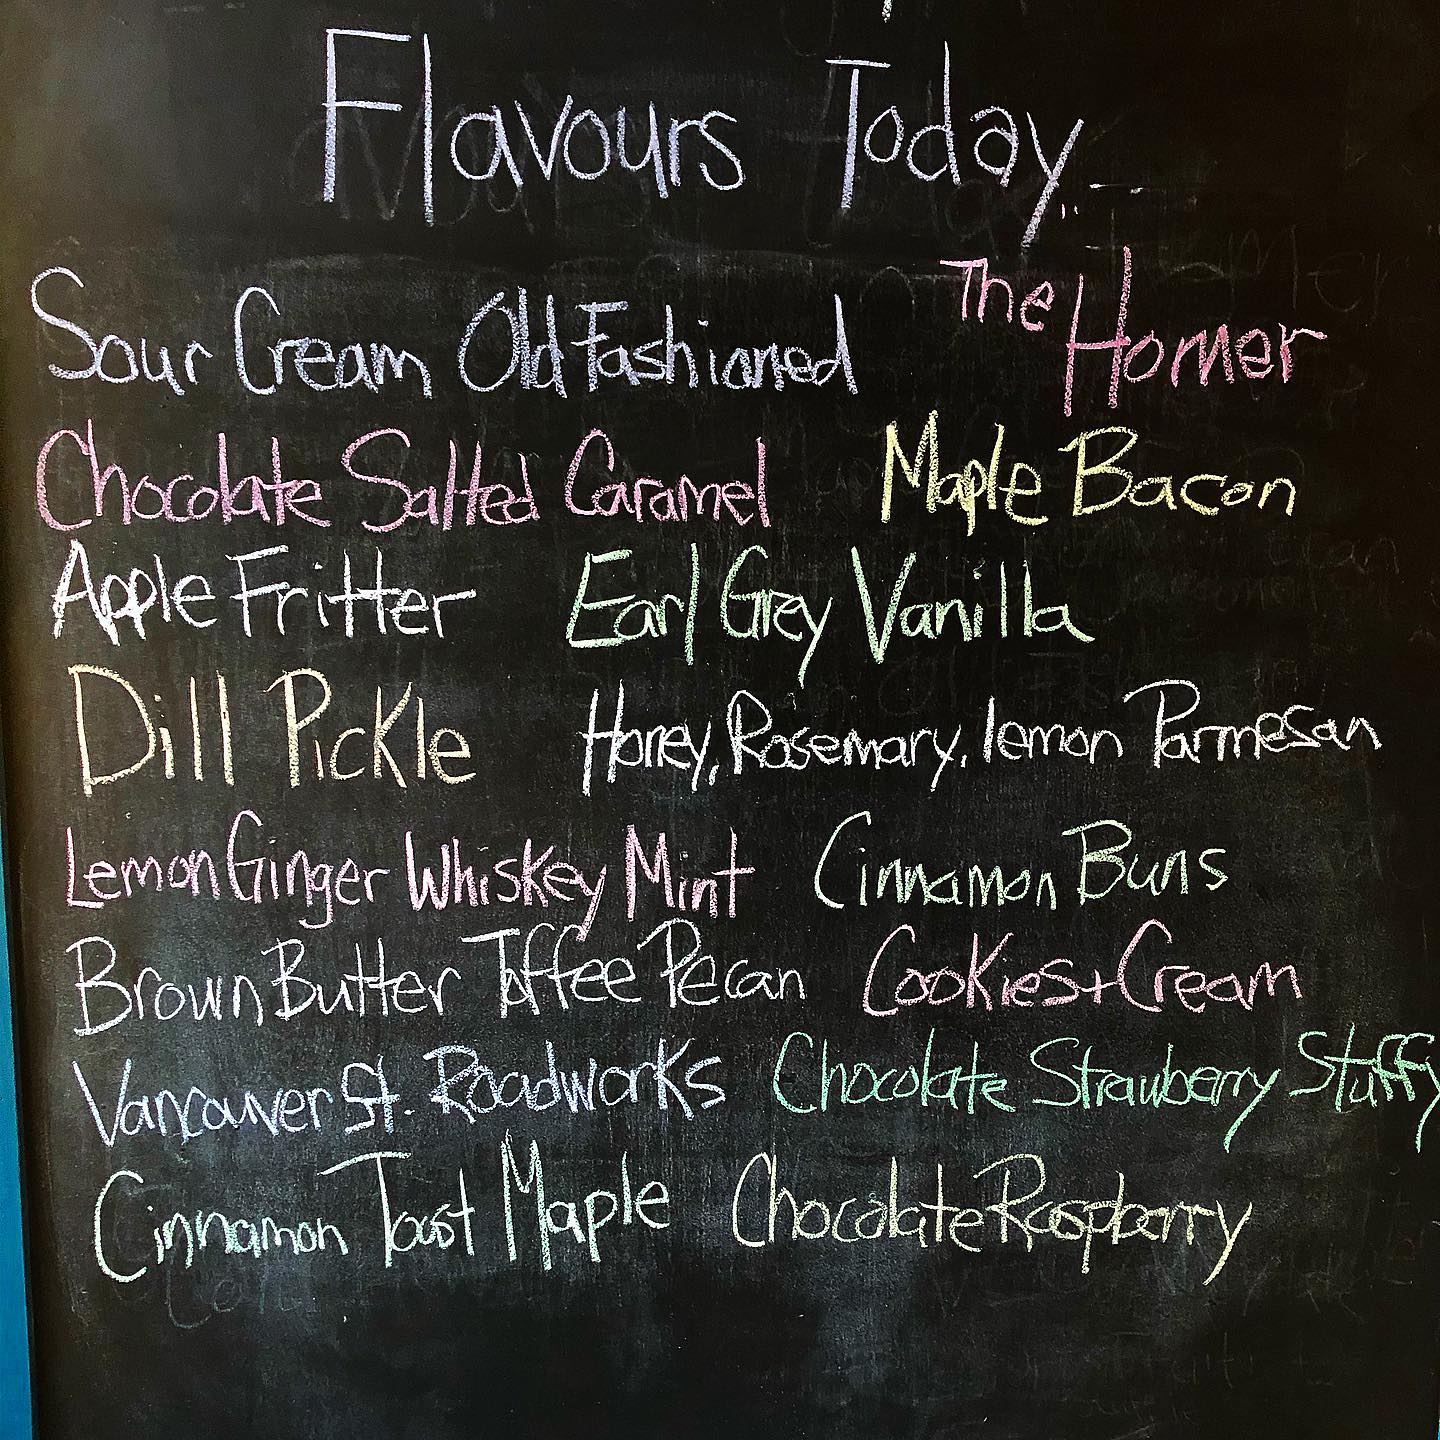 Flavours Today...
Sour Cream Old Fashioned The Homer
Chocolate Salted Caramel Maple Bacon
Apple Fritter Earl Grey Vanilla
Dill Pickle Honey, Rosemary, lemon Parmesan
Lemon Ginger Whiskey Mint Cinnamon Buns
Brown Butter Toffee Pecan Cookies + Cream
Vancouver St. Roadworks Chocolate Strawberry Stuffy
Cinnamon Toast Maple Chocolate Raspberry